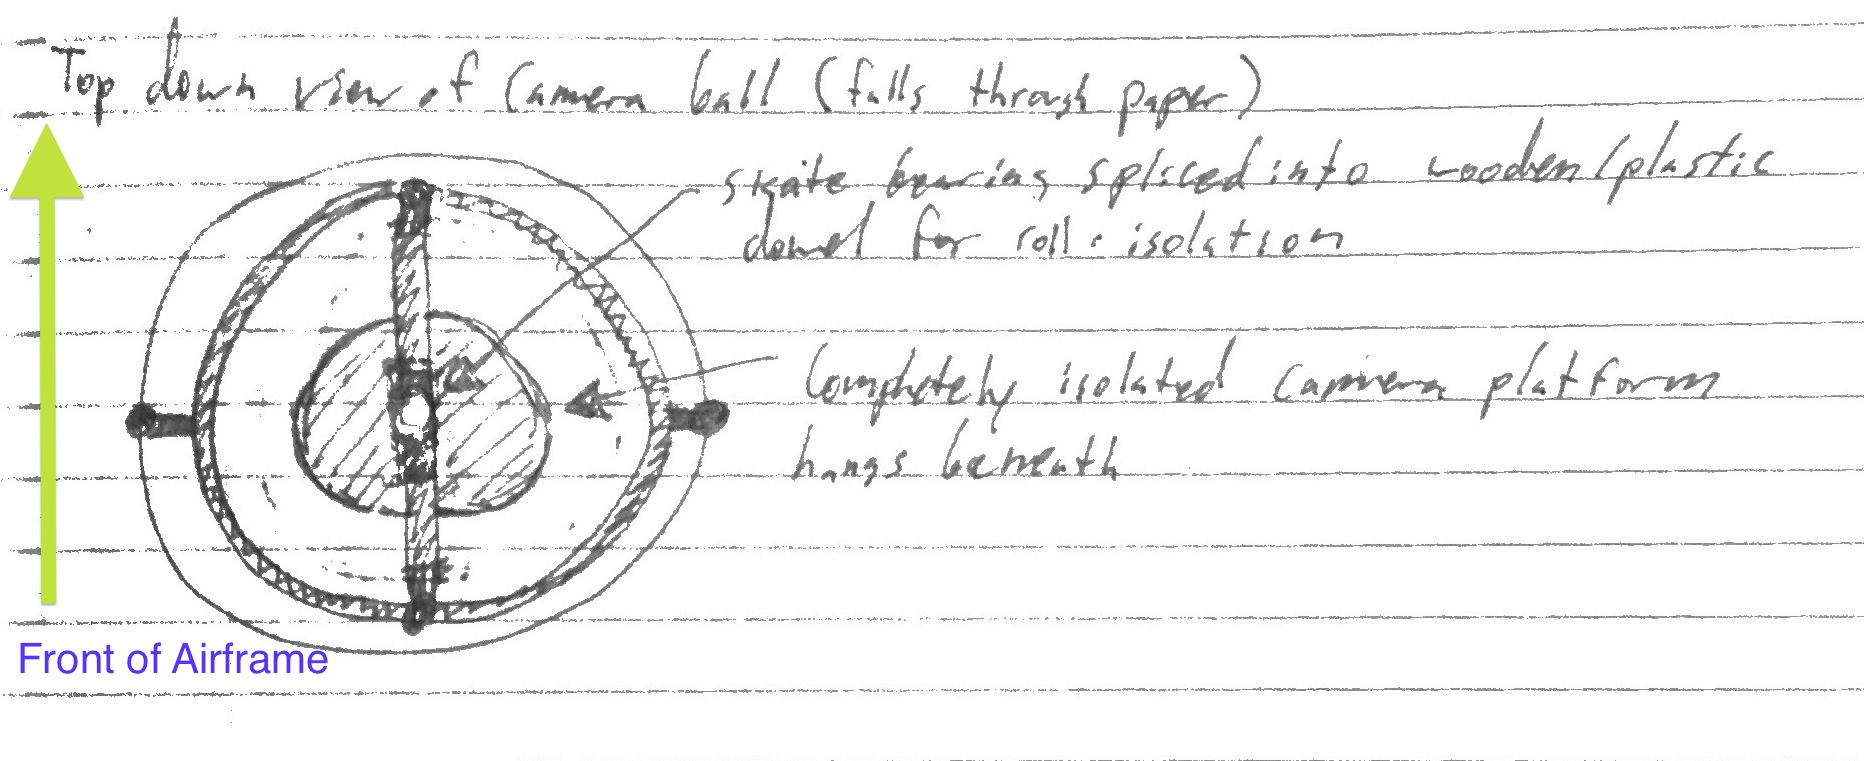 Top down view of Camera ball (falls through paper)
skate bearing spliced into wooden/plastic
dowel for roll isolation
Completely isolated camera platform
hangs beneath
Front of Airframe